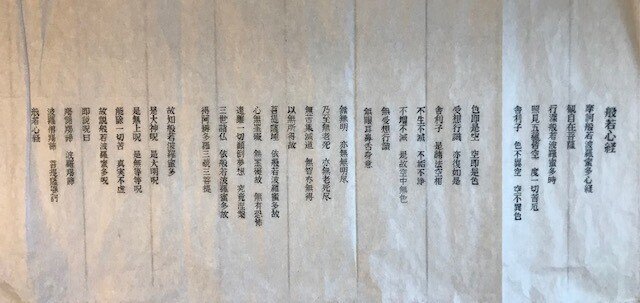 般若心経
摩訶般若波羅蜜多心経
観自在菩薩
行深般若波羅蜜多時
照見五蘊皆空 度一切苦厄
舎利子 色不異空 空不異色
色即是空 空即是色
受想行識 亦復如是
舎利子 是諸法空相
不生不滅 不垢不浄
不増不減 是故空中無色
無受想行識
無眼耳鼻舌身意
無無明 亦無無明尽
乃至無老死 亦無老死尽
無苦集滅道 無智亦無得
以無所得故
菩提薩埵 依般若波羅蜜多故
心無罣礙 無罣礙故 無有恐怖
遠離一切顛倒夢想 究竟涅槃
三世諸仏 依般若波羅蜜多故
得阿耨多羅三藐三菩提
故知般若波羅蜜多
是大神呪 是大明呪
是無上呪 是無等等呪
能除一切苦 真実不虚
故説般若波羅蜜多呪
即説呪曰
羯諦羯諦 波羅羯諦
波羅僧羯諦 菩提薩婆訶
般若心経